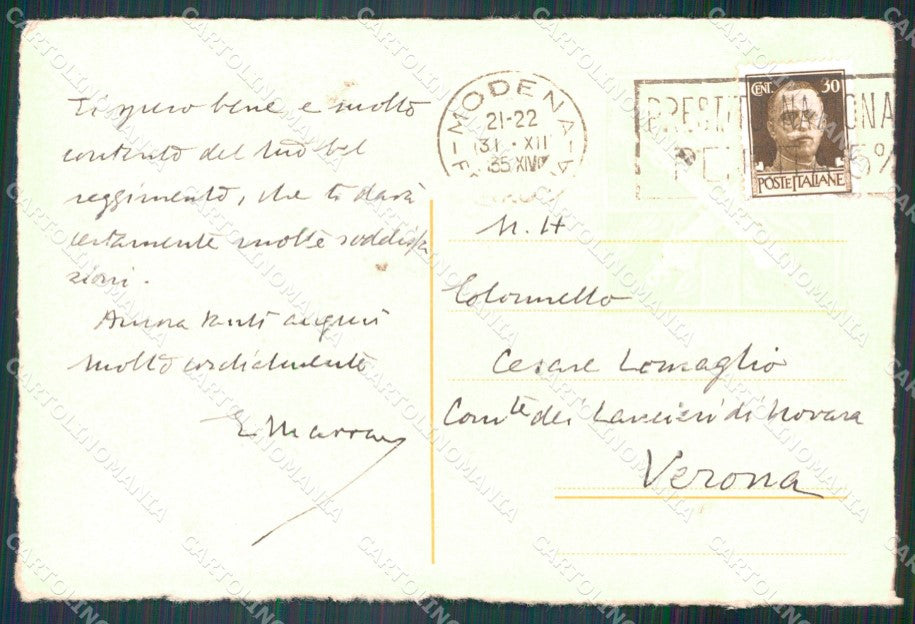 Ti spero bene e molto
contento del tuo bel
reggimento, che ti darà
certamente molte soddisfa
zioni.
Ancora tanti auguri
molto cordialmente
E. Marran
MODENA
21-22
31 . XII
35 XIV
PRESTITO NAZIONA
5%
CENT. 30
POSTE ITALIANE
N. H
Colonnello
Cesare Lomaglio
Com.te dei Lancieri di Novara
Verona
CARTOLINOMANIA